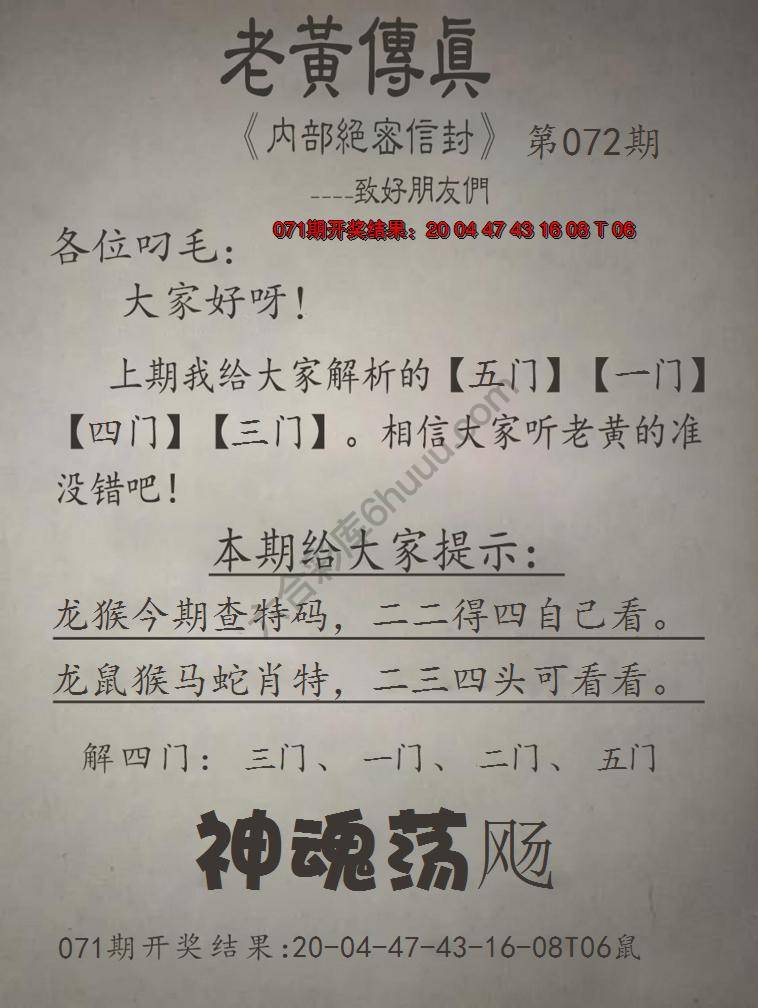 老黃傳眞
《内部絕密信封》 第072期
----致好朋友們
071期开奖结果：20 04 47 43 16 08 T 06
各位叼毛：
大家好呀！
上期我给大家解析的【五门】【一门】
【四门】【三门】。相信大家听老黄的准
没错吧！
本期给大家提示：
龙猴今期查特码，二二得四自己看。
龙鼠猴马蛇肖特，二三四头可看看。
解四门：三门、一门、二门、五门
神魂荡飏
071期开奖结果:20-04-47-43-16-08T06鼠
六合彩库6huuu.com